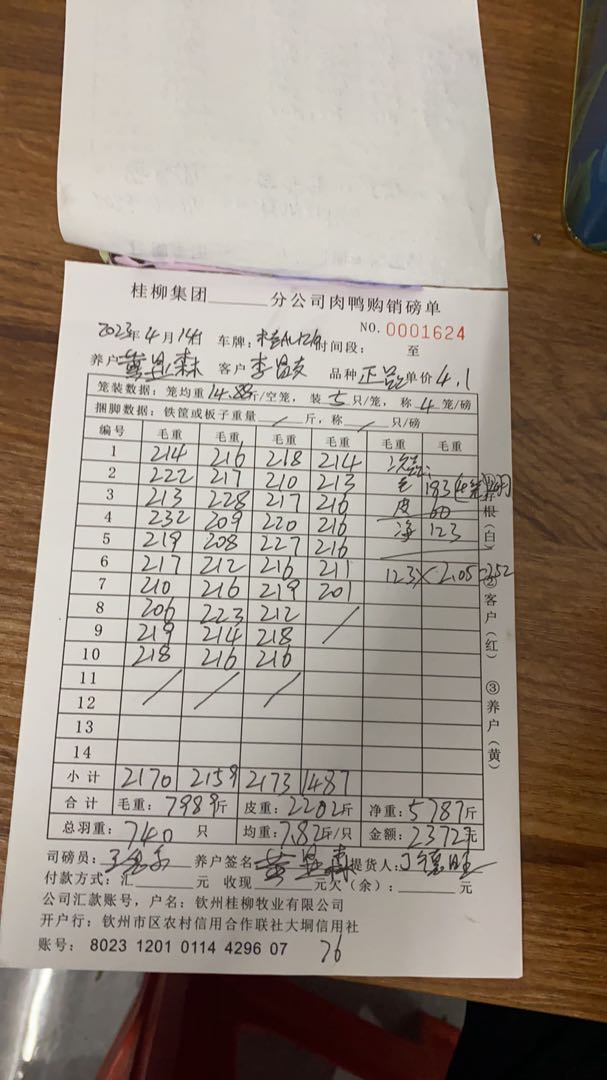 桂柳集团______分公司肉鸭购销磅单
NO.0001624
2023年4月14日 车牌: 时间段: 至
养户 黄显森 客户 李昌友 品种 正品 单价 4.1
笼装数据：笼均重14.88斤/空笼，装5只/笼，称4笼/磅
捆脚数据：铁筐或板子重量 / 斤，称 / 只/磅
编号 毛重 毛重 毛重 毛重 毛重 毛重
1 214 216 218 214 次品:
2 222 217 210 213 毛 183
3 213 228 217 216 皮 60
4 232 209 220 216 净 123
5 219 208 227 216
6 217 212 216 211 123×2.05=252
7 210 216 219 201
8 206 223 212 /
9 219 214 218
10 218 216 216
11 / / /
12
13
14
小计 2170 2159 2173 1487
合计 毛重：7989斤 皮重：2202斤 净重：5787斤
总羽重：740 只 均重：7.82斤/只 金额：2372元
司磅员： 养户签名：黄显森 提货人：丁德旺
付款方式：汇______元 收现______元欠（余）：______元
公司汇款账号，户名：钦州桂柳牧业有限公司
开户行：钦州市区农村信用合作联社大垌信用社
账号：8023 1201 0114 4296 07 76
根（白）②客户（红）③养户（黄）